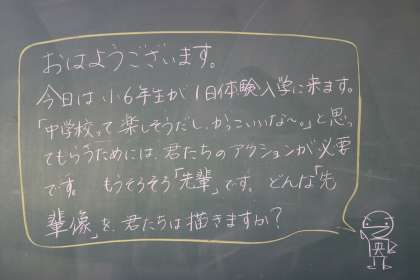 おはようございます。
今日は小6年生が1日体験入学に来ます。
「中学校って楽しそうだし、かっこいいな〜。」と思っ
てもらうためには、君たちのアクションが必要
です。もうそろそろ「先輩」です。どんな「先
輩像」を、君たちは描きますか?
央